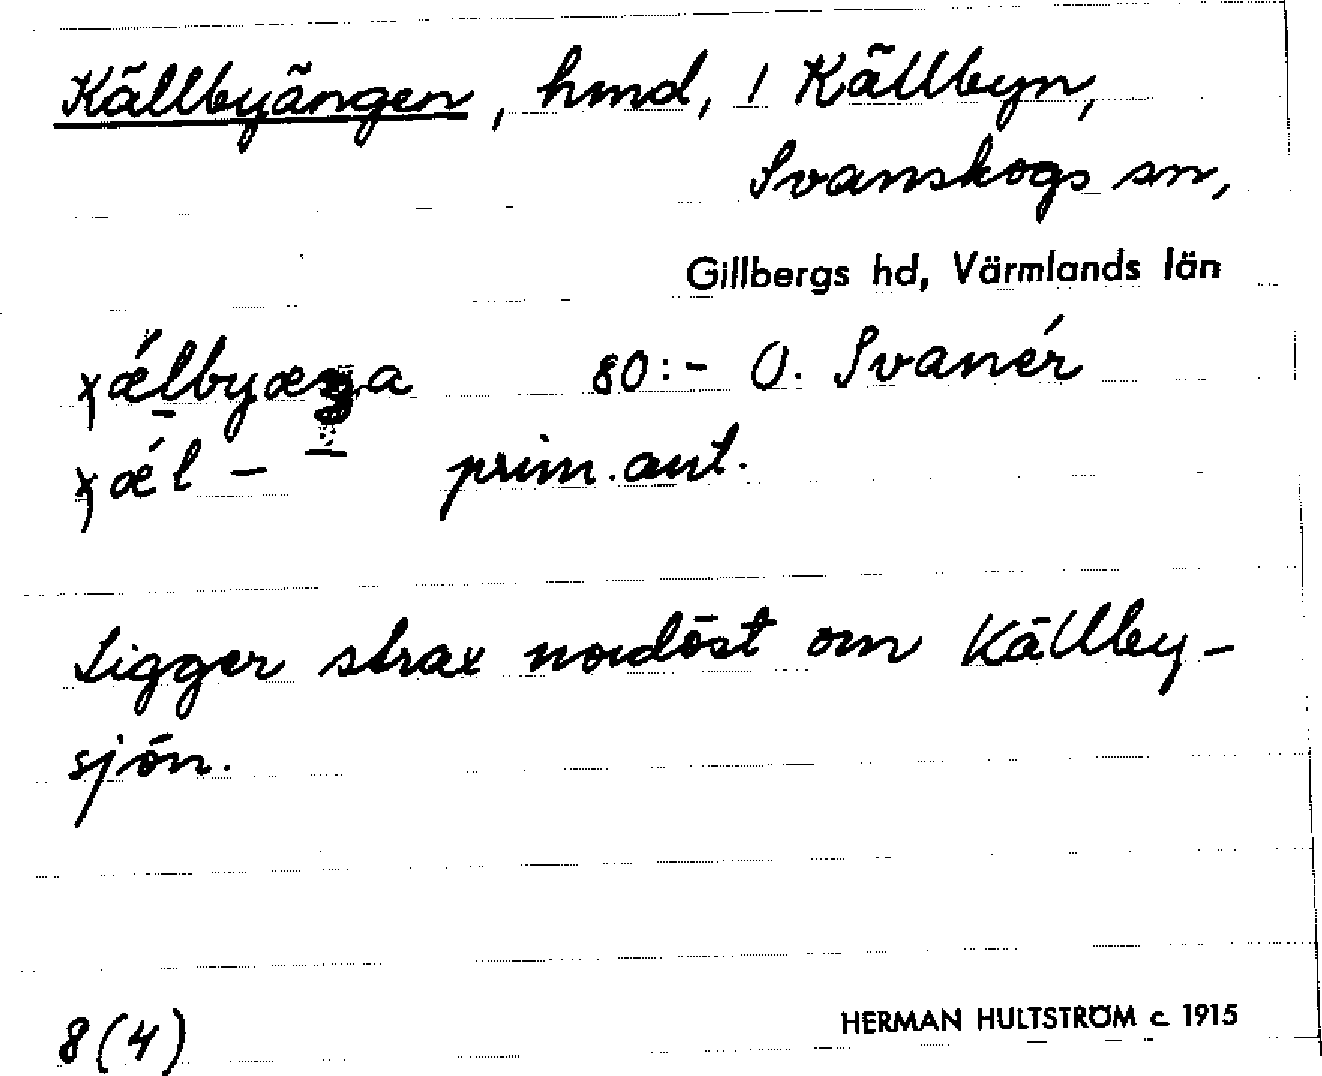 Källbyängen, hmd, 1 Källbyn,
Svanskogs sn,
Gillbergs hd, Värmlands län
80:- O. Svanér
prim. ant.
Ligger strax nordöst om Källby-
sjön.
8(4)
HERMAN HULTSTRÖM c. 1915